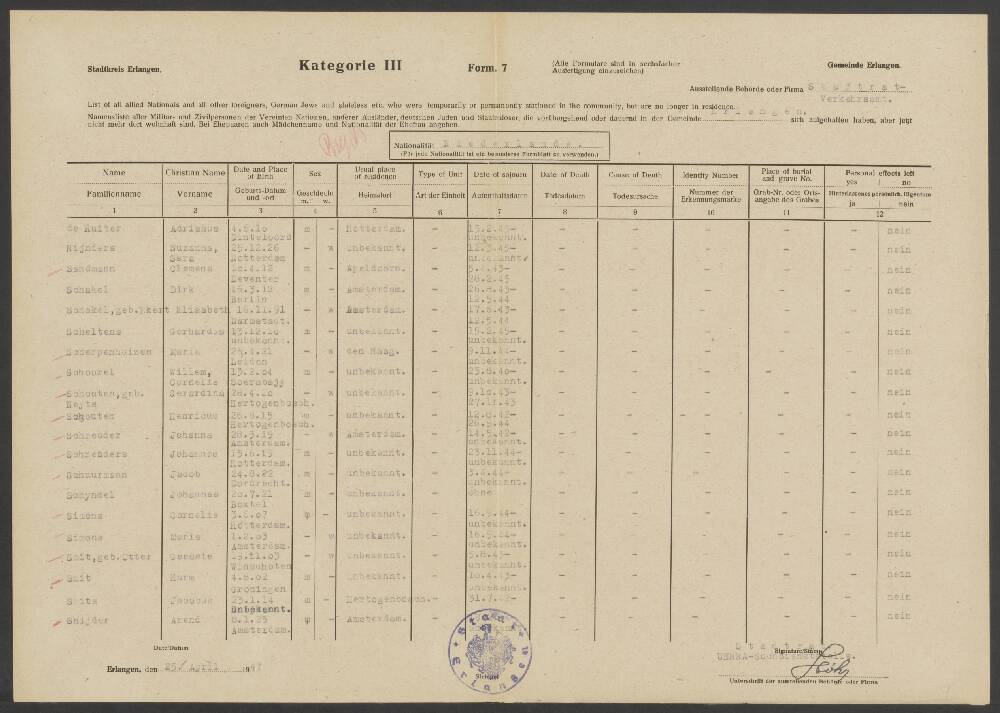 Stadtkreis Erlangen.
Kategorie III
Form. 7
(Alle Formulare sind in sechsfacher
Ausfertigung einzureichen)
Gemeinde Erlangen.
Ausstellende Behörde oder Firma Stadtrat-
Verkehrsamt.
List of all allied Nationals and all other foreigners, German Jews and stateless etc. who were temporarily or permanently stationed in the community, but are no longer in residence.
Namensliste aller Militär- und Zivilpersonen der Vereinten Nationen, anderer Ausländer, deutschen Juden und Staatenloser, die vorübergehend oder dauernd in der Gemeinde Erlangen. sich aufgehalten haben, aber jetzt
nicht mehr dort wohnhaft sind. Bei Ehepaaren auch Mädchenname und Nationalität der Ehefrau angeben.
Nationalität: Niederlande.
(Für jede Nationalität ist ein besonderes Formblatt zu verwenden.)
Name Christian Name Date and Place of Birth Sex Usual place of residence Type of Unit Date of sojourn Date of Death Cause of Death Identity Number Place of burial and grave No. Personal effects left yes | no
Familienname Vorname Geburts-Datum und -ort Geschlecht m. w. Heimatort Art der Einheit Aufenthaltsdatum Todesdatum Todesursache Nummer der Erkennungsmarke Grab-Nr. oder Orts-angabe des Grabes Hinterlassenes persönlich. Eigentum ja | nein
1 2 3 4 5 6 7 8 9 10 11 12
de Ruiter Adrianus 4.6.10 m - Rotterdam. - 15.2.45- - - - - - nein
Dinteloord unbekannt.
Rijnders Suzanna, 25.12.26 - w unbekannt. - 12.3.45- - - - - - nein
Sara Rotterdam unbekannt.
Sandmann Clemens m - Apeldoorn. - 5.4.43- - - - - - nein
Deventer 28.2.45
Schakel Dirk 16.3.12 m - Amsterdam. - 26.8.43- - - - - - nein
Berlin 12.5.44
Schakel,geb.Ekert Elisabeth 16.11.91 - w Amsterdam. - 17.8.43- - - - - - nein
Darmstadt. 12.5.44
Scheltens Gerhardus 13.12.10 m - unbekannt. - 15.2.45- - - - - - nein
unbekannt. unbekannt.
Maria 24.4.21 - w den Haag. - 9.11.44- - - - - - nein
Leiden unbekannt.
Schoorel Willem, 13.2.04 m - unbekannt. - 23.8.40- - - - - - nein
Cornelis unbekannt.
Schouten,geb. Gerardina 28.4.20 - w unbekannt. - 9.10.43- - - - - - nein
Hertogenbosch. 27.11.43
Schouten Henricus 26.8.15 - unbekannt. - 12.8.42- - - - - - nein
Hertogenbosch. 26.5.44
Schreuder Johanna 28.3.19 - w Amsterdam. - 14.5.42- - - - - - nein
Amsterdam. unbekannt.
Schreuders Johannes 15.6.13 m - unbekannt. - 23.11.44- - - - - - nein
Rotterdam. unbekannt.
Schuurman Jacob 24.8.22 m - unbekannt. - 3.6.44- - - - - - nein
Dordrecht. unbekannt.
Schyndel Johannes 20.7.21 m - unbekannt. - ohne - - - - - nein
Boxtel
Simons Cornelis 3.6.07 - unbekannt. - 16.5.44- - - - - - nein
Rotterdam. unbekannt.
Simons Maria 1.2.03 - w unbekannt. - 16.5.44- - - - - - nein
Amsterdam. unbekannt.
Smit,geb.Otter 19.11.03 - w unbekannt. - 5.8.43- - - - - - nein
Winschoten unbekannt.
Smit Harm 4.8.02 m - unbekannt. - 10.4.43- - - - - - nein
Groningen unbekannt.
Smits Jacobus 23.1.14 m - Hertogenbosch.- 31.7.42- - - - - - nein
Unbekannt.
Snijder Arend 6.1.25 - Amsterdam. - - - - - - nein
Amsterdam.
Date/Datum
Erlangen, den 25/ April 1947
Stadtrat Erlangen
Siegel
Signature/Stamp
Unterschrift der ausstellenden Behörde oder Firma